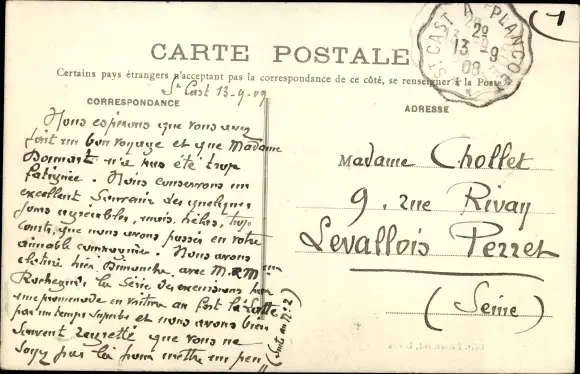 CARTE POSTALE
Certains pays étrangers n'acceptant pas la correspondance de ce côté, se renseigner à la Poste
CORRESPONDANCE
ADRESSE
ST CAST A PLANCOËT
2º
13 9
08
1
St Cast 13-9-09
Nous espérons que vous avez
fait un bon voyage et que Madame
n'a pas été trop
fatiguée. Nous conservons un
excellent souvenir des quelques
jours agréables, mais, hélas, trop
courts, que nous avons passés en votre
aimable compagnie. Nous avons
clôturé hier, Dimanche, avec M. & Mme
la série des excursions par
une promenade en voiture au fort la Latte
par un temps superbe et nous avons bien
souvent regretté que vous ne
soyez pas là pour mettre un peu
(Suite au Nº 2)
Madame Chollet
9, rue Rivay
Levallois Perret
(Seine)